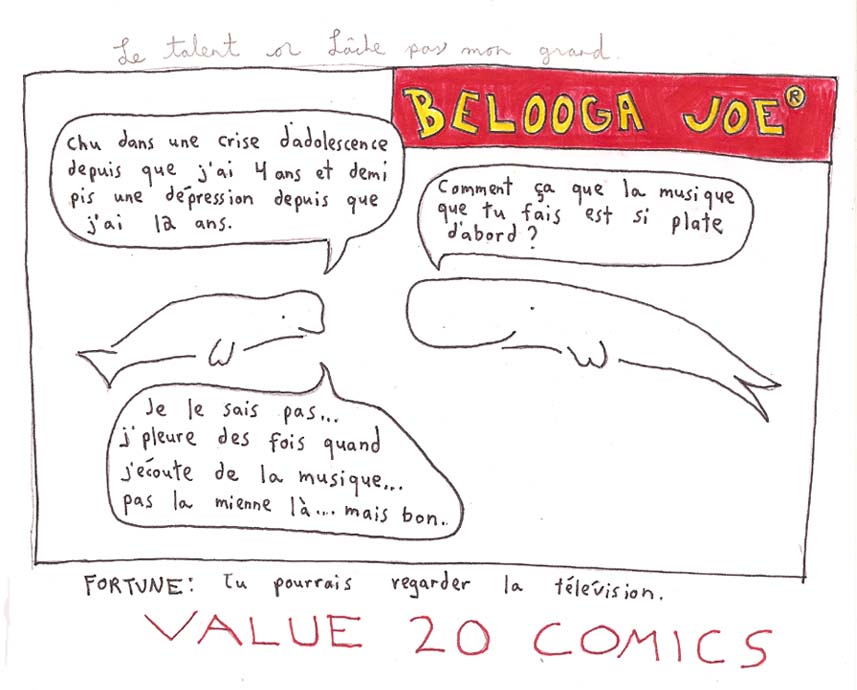 Le talent or Lâche pas mon grand.
BELOOGA JOE®
Chu dans une crise d'adolescence
depuis que j'ai 4 ans et demi
pis une dépression depuis que
j'ai 12 ans.
Comment ça que la musique
que tu fais est si plate
d'abord?
Je le sais pas...
j'pleure des fois quand
j'écoute de la musique...
pas la mienne là.... mais bon..
FORTUNE: Tu pourrais regarder la télévision.
VALUE 20 COMICS